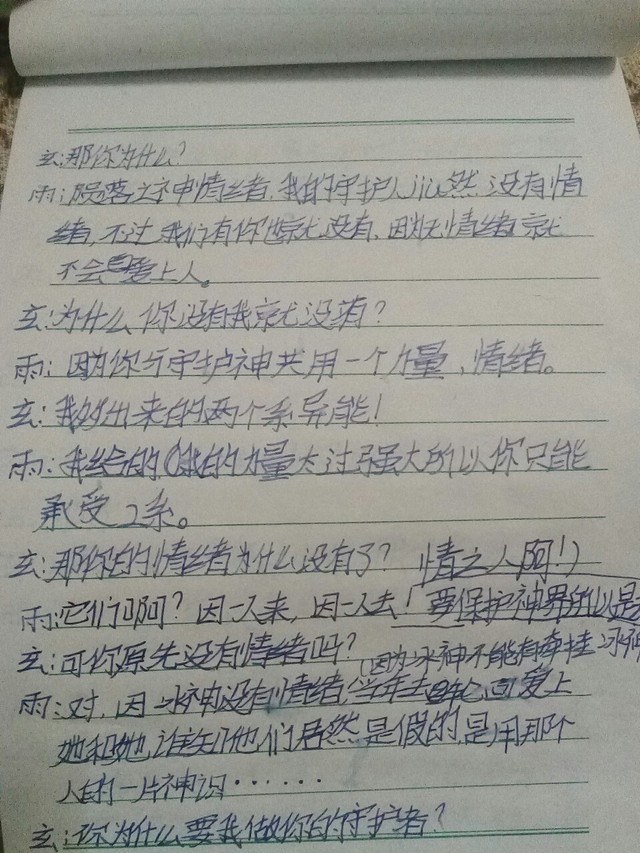 玄:那你为什么?
雨:陨落之神情绪,我的守护人心然没有情
绪,不过我们有你也就没有,因为无情绪就
不会爱上人。
玄:为什么你没有我就没有?
雨:因为你与守护神共用一个力量、情绪。
玄:我多出来的两个系异能!
雨:我给的(我的力量太过强大所以你只能
承受2系。
玄:那你的情绪为什么没有了? 情之人阿!)
雨:它们啊?因人来,因人去!(要保护神界所以是
玄:可你原先没有情绪吗?(因为冰神不能有牵挂 冰神
雨:对,因冰神没有情绪,当年去 爱上
她和她,谁知他们居然是假的,是用那个
人的一片神识……
玄:你为什么要我做你的守护者?